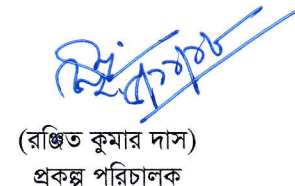 (রঞ্জিত কুমার দাস)
প্রকল্প পরিচালক